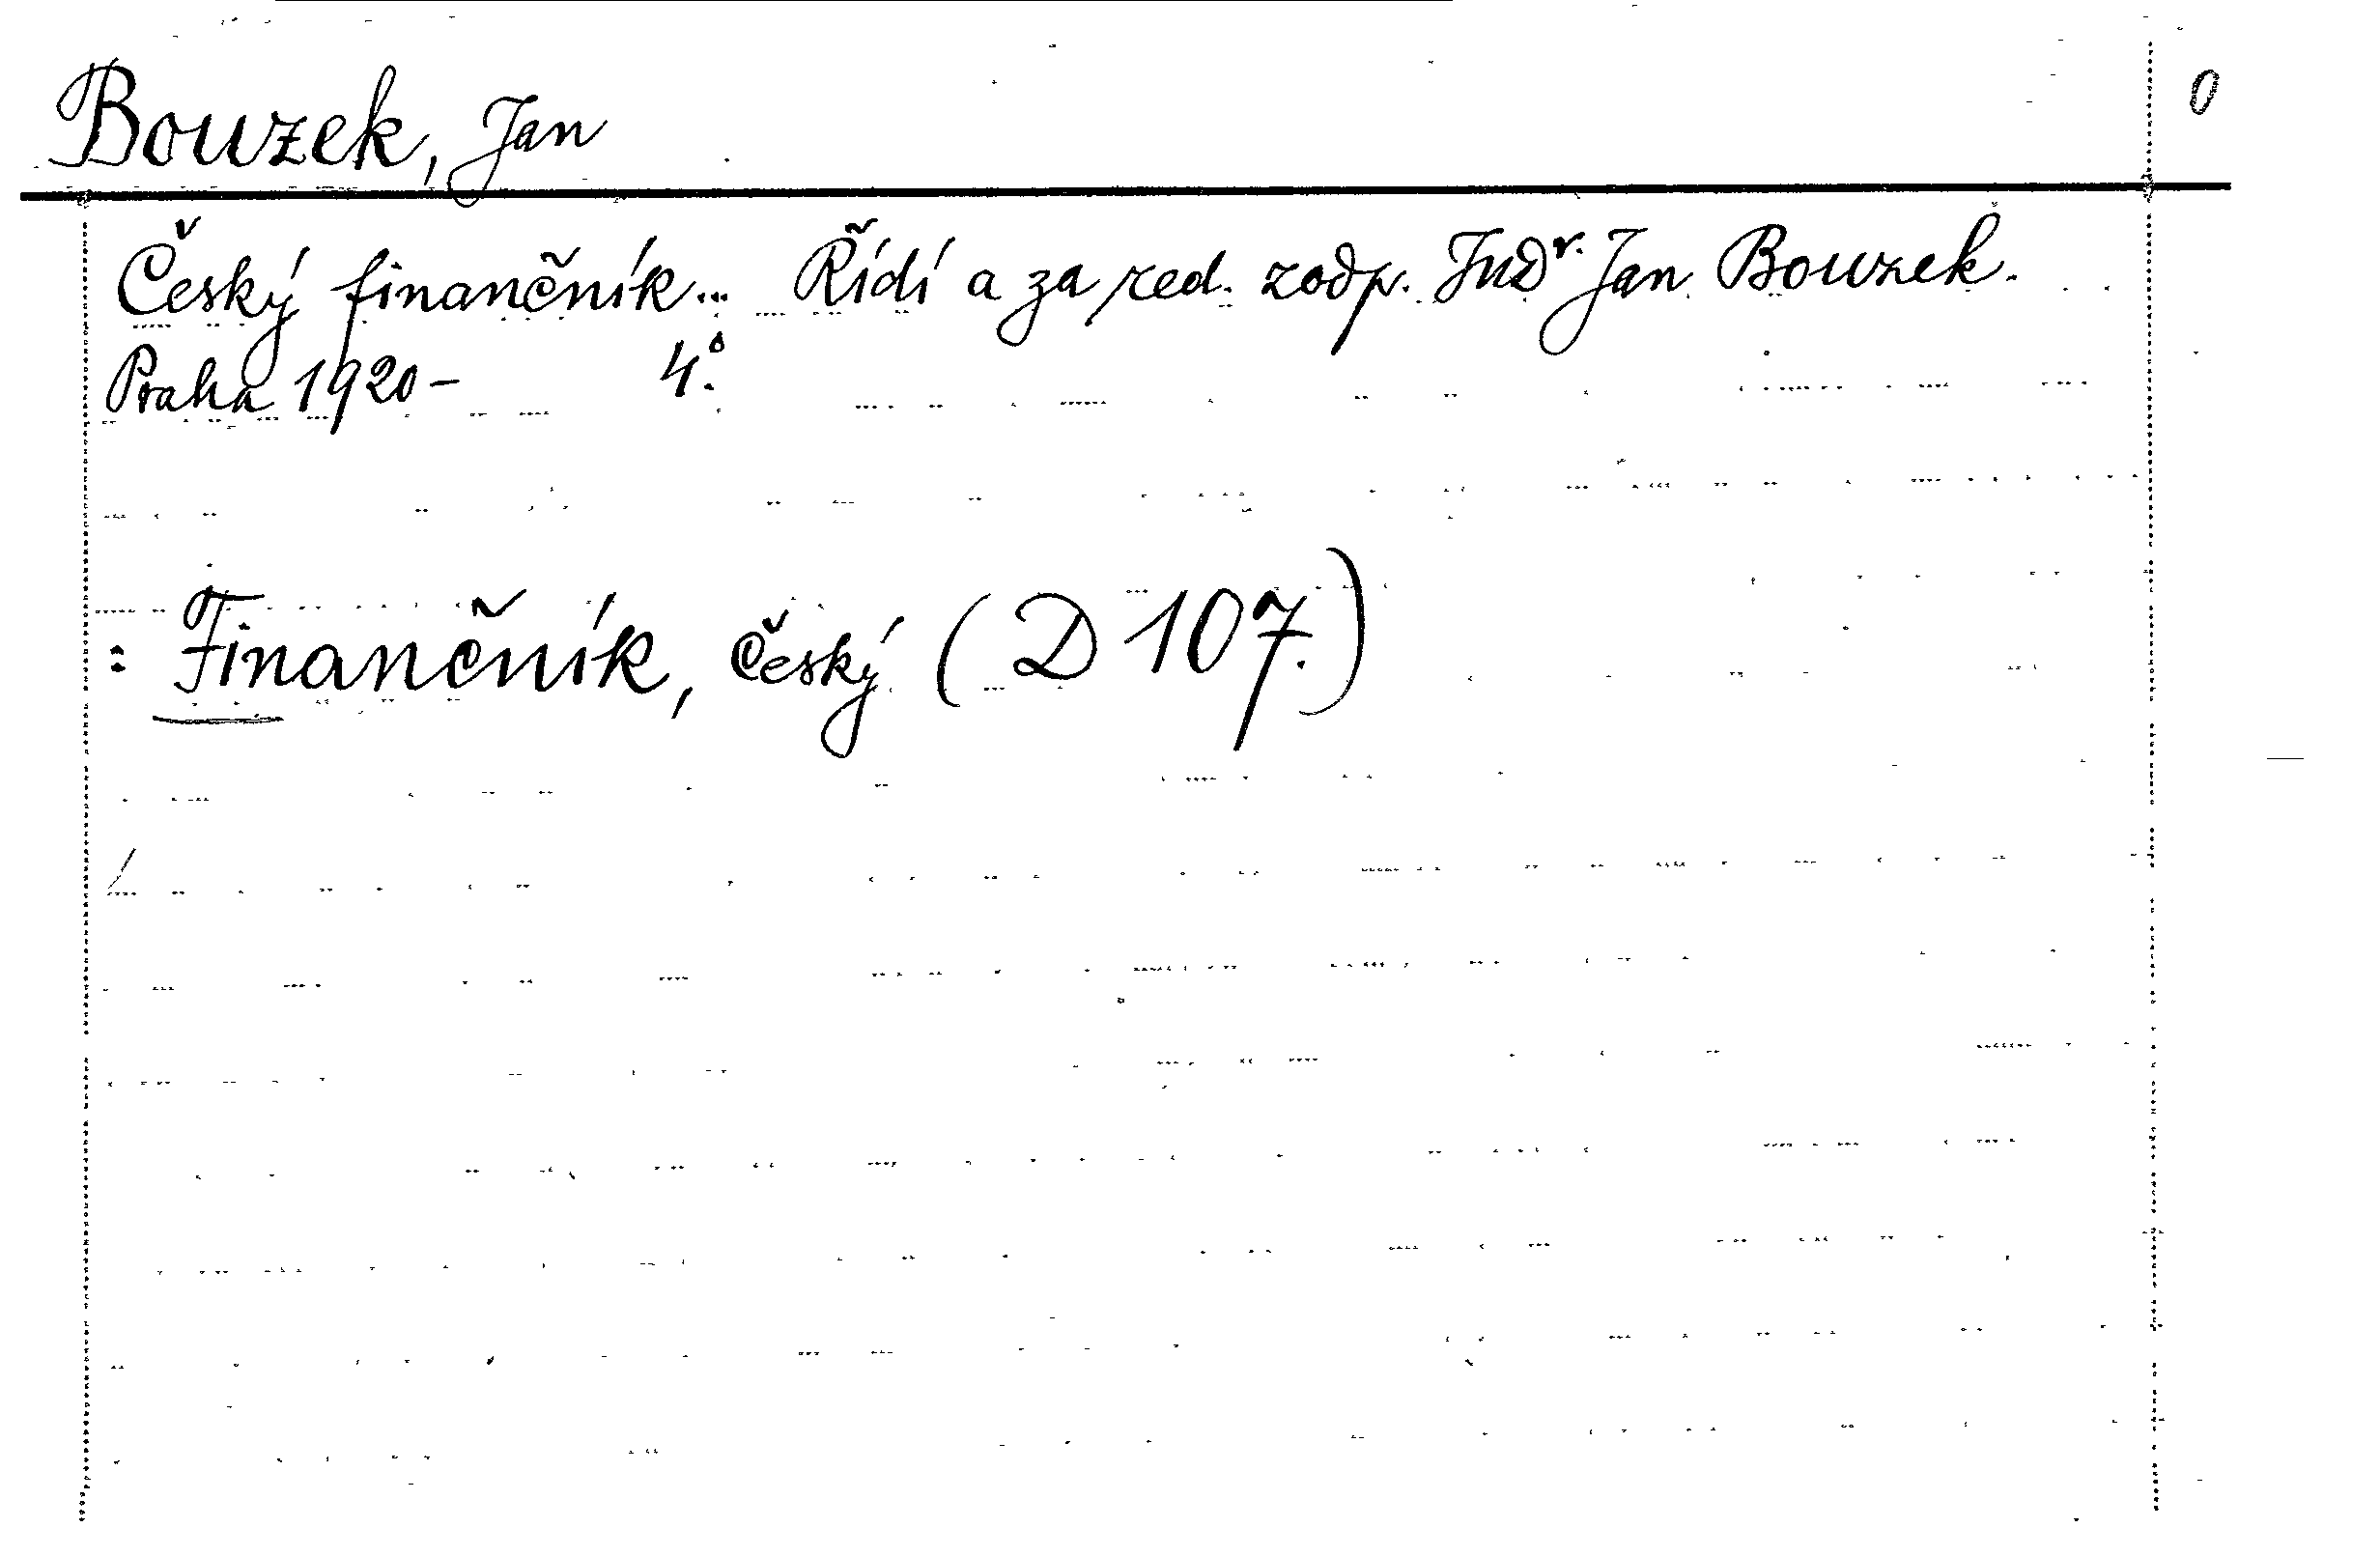 Bouzek, Jan 0
Český finančník... Řídí a za red. zodp. JuDr. Jan Bouzek.
Praha 1920– 4°.
: Finančník, český (D 107.)